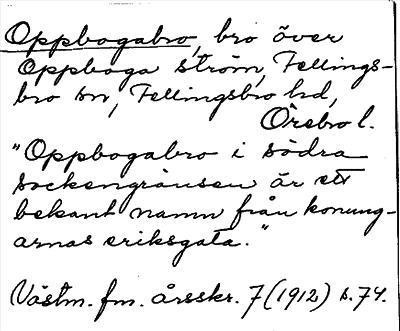 Oppbogabro, bro över
Oppboga ström, Fellings-
bro sn, Fellingsbro hd,
Örebro l.
"Oppbogabro i södra
sockengränsen är ett
bekant namn från konung-
arnas eriksgata."
Västm. fm. årsskr. 7 (1912) s. 74.